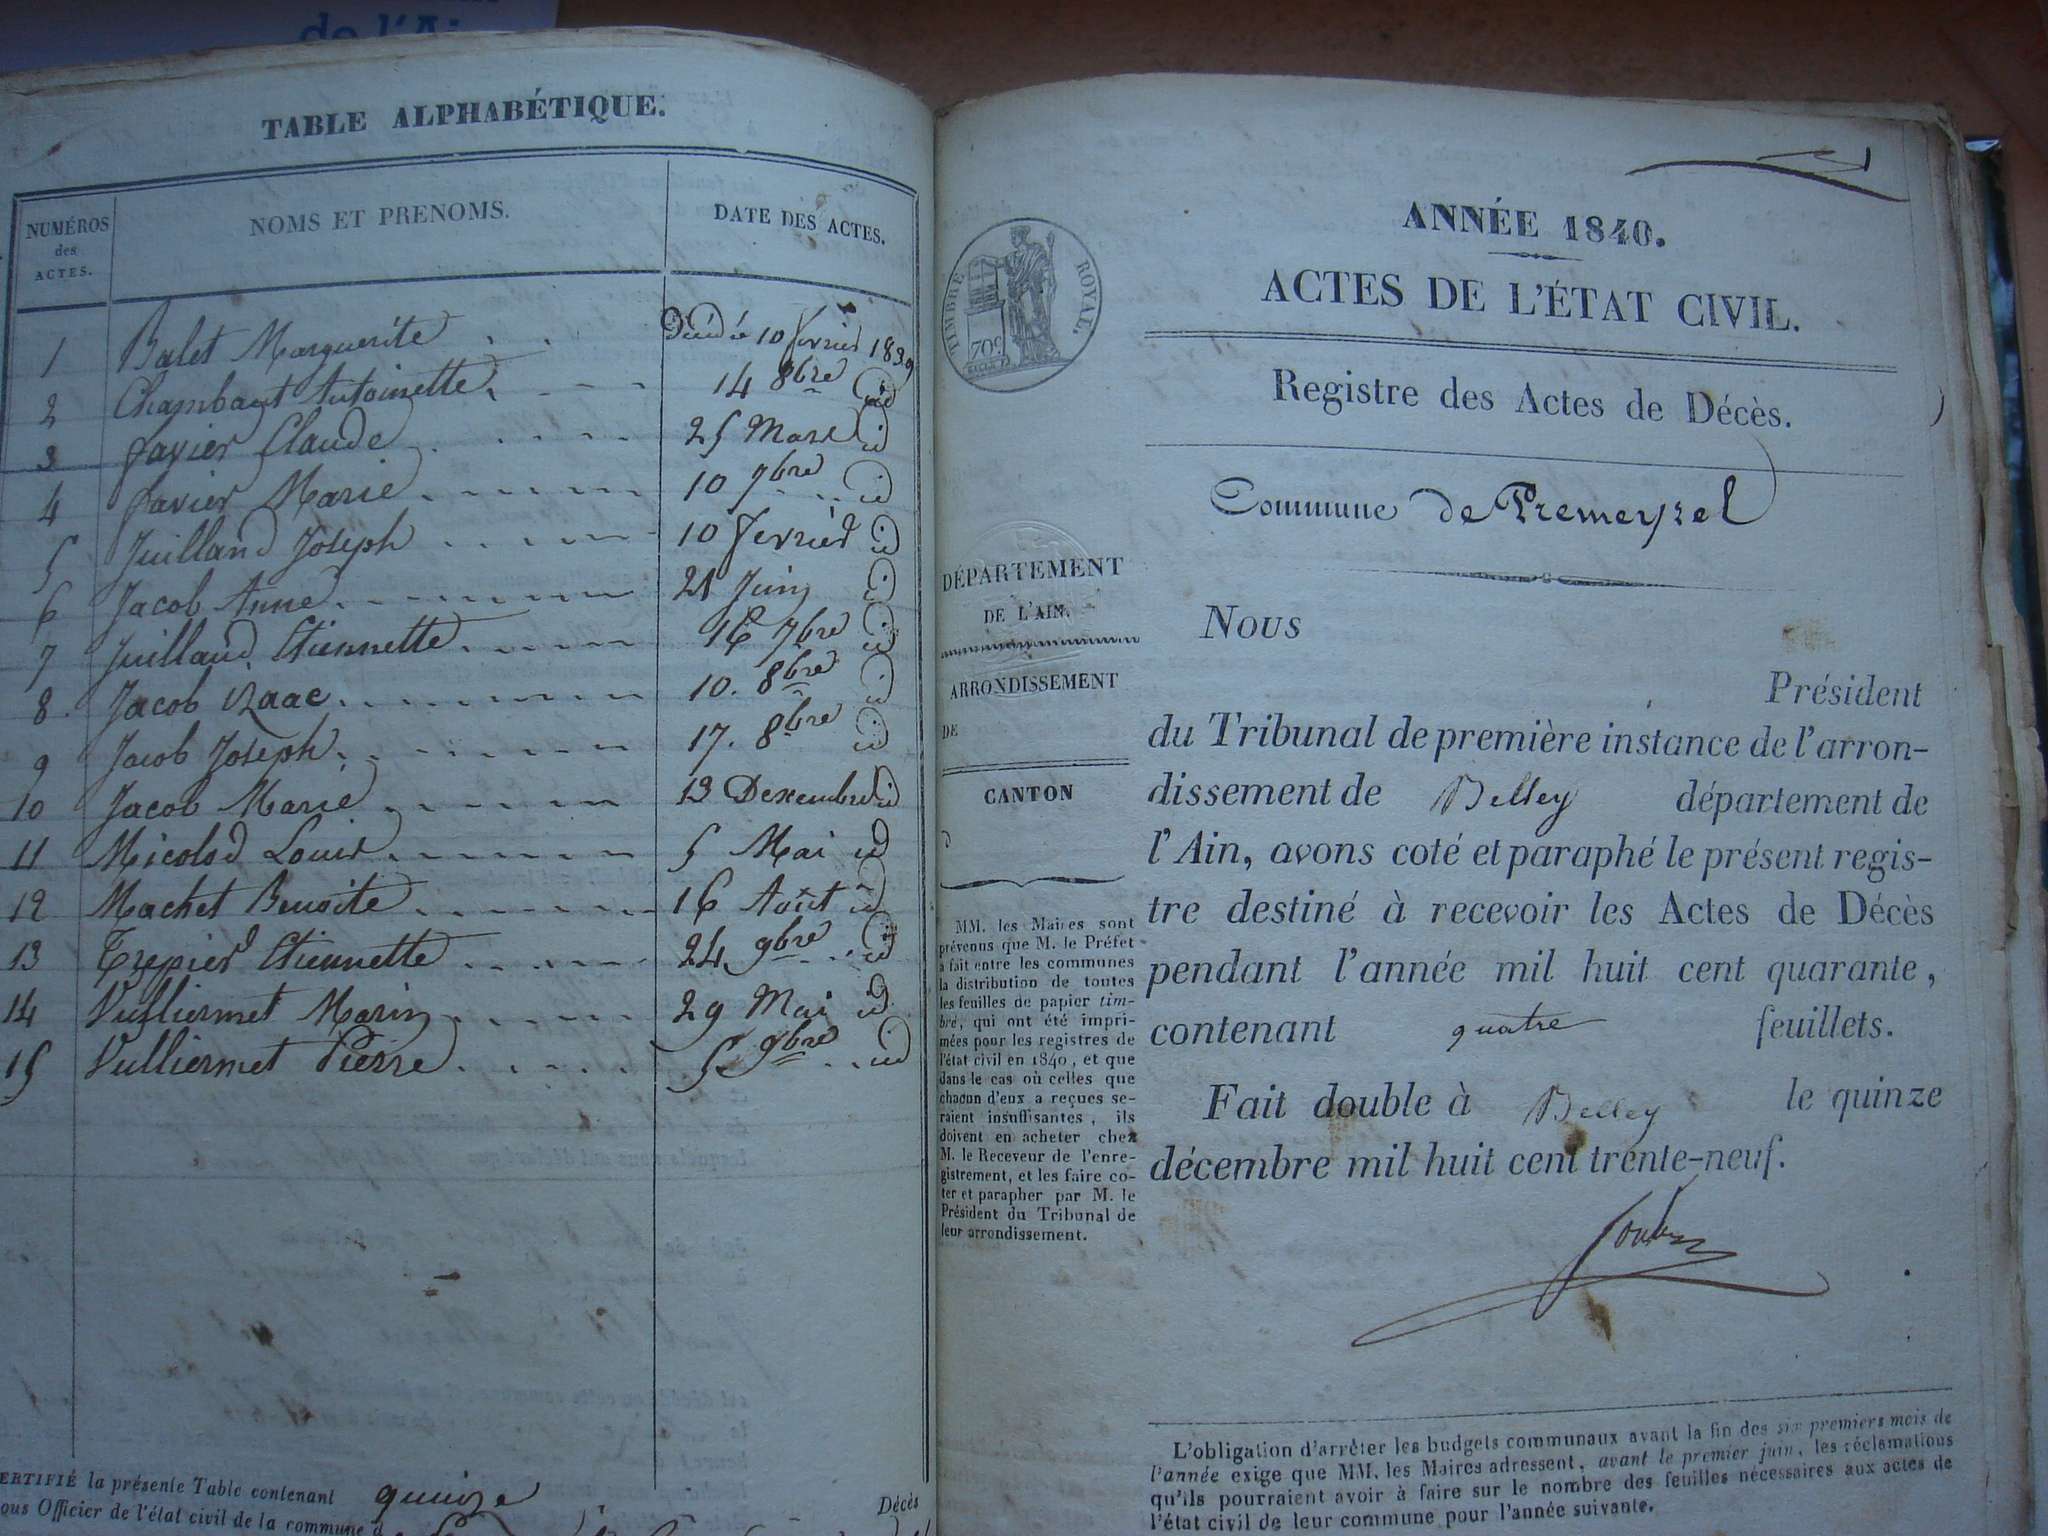 de l'Ai
TABLE ALPHABÉTIQUE.
NUMÉROS
des
ACTES.
NOMS ET PRENOMS.
DATE DES ACTES.
1 Balet Marguerite Décédée 10 février 1839
2 Chambaut Antoinette 14 8bre id
3 Javier Claude 25 Mars id
4 Javier Marie 10 7bre id
5 Juilland Joseph 10 Fevrier id
6 Jacob Anne 21 Juin id
7 Juilland Etiennette 16 7bre id
8 Jacob Izaac 10. 8bre id
9 Jacob Joseph 17. 8bre id
10 Jacob Marie 13 Dexembre id
11 Micolod Louis 5 Mai id
12 Machet Benoite 16 Août id
13 Trepier Etiennette 24 9bre id
14 Vulliermet Marin 29 Mai id
15 Vulliermet Pierre 5 9bre id
ERTIFIÉ la présente Table contenant quinze Décès
ous Officier de l'état civil de la commune d
ANNÉE 1840.
ACTES DE L'ÉTAT CIVIL.
TIMBRE ROYAL.
70c
Registre des Actes de Décès.
Commune de Premeyzel
DÉPARTEMENT
DE L'AIN.
ARRONDISSEMENT
DE
CANTON
D
MM. les Maires sont
prévenus que M. le Préfet
a fait entre les communes
la distribution de toutes
les feuilles de papier tim-
bré, qui ont été impri-
mées pour les registres de
l'état civil en 1840, et que
dans le cas où celles que
chacun d'eux a reçues se-
raient insuffisantes, ils
doivent en acheter chez
M. le Receveur de l'enre-
gistrement, et les faire co-
ter et parapher par M. le
Président du Tribunal de
leur arrondissement.
Nous
Président
du Tribunal de première instance de l'arron-
dissement de Belley département de
l'Ain, avons coté et paraphé le présent regis-
tre destiné à recevoir les Actes de Décès
pendant l'année mil huit cent quarante,
contenant quatre feuillets.
Fait double à Belley le quinze
décembre mil huit cent trente-neuf.
L'obligation d'arrêter les budgets communaux avant la fin des six premiers mois de
l'année exige que MM. les Maires adressent, avant le premier juin, les réclamations
qu'ils pourraient avoir à faire sur le nombre des feuilles nécessaires aux actes de
l'état civil de leur commune pour l'année suivante.